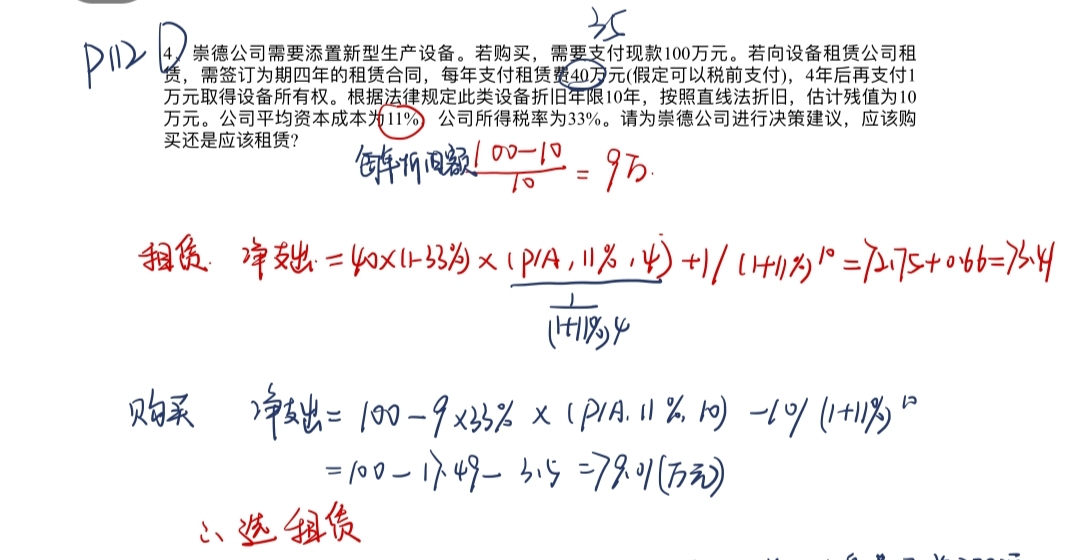 35
P112
4、崇德公司需要添置新型生产设备。若购买，需要支付现款100万元。若向设备租赁公司租
赁，需签订为期四年的租赁合同，每年支付租赁费40万元(假定可以税前支付)，4年后再支付1
万元取得设备所有权。根据法律规定此类设备折旧年限10年，按照直线法折旧，估计残值为10
万元。公司平均资本成本为11%，公司所得税率为33%。请为崇德公司进行决策建议，应该购
买还是应该租赁?
每年折旧额 100-10/10 = 9万.
租赁. 净支出 = 40×(1-33%) × (P/A, 11%, 4) + 1/(1+11%)^10 = 72.75+0.66=73.41
1/(1+11%)4
购买 净支出 = 100 - 9×33% × (P/A. 11%, 10) - 10/(1+11%)^10
= 100 - 17.49 - 3.5 = 79.01(万元)
∴选租赁